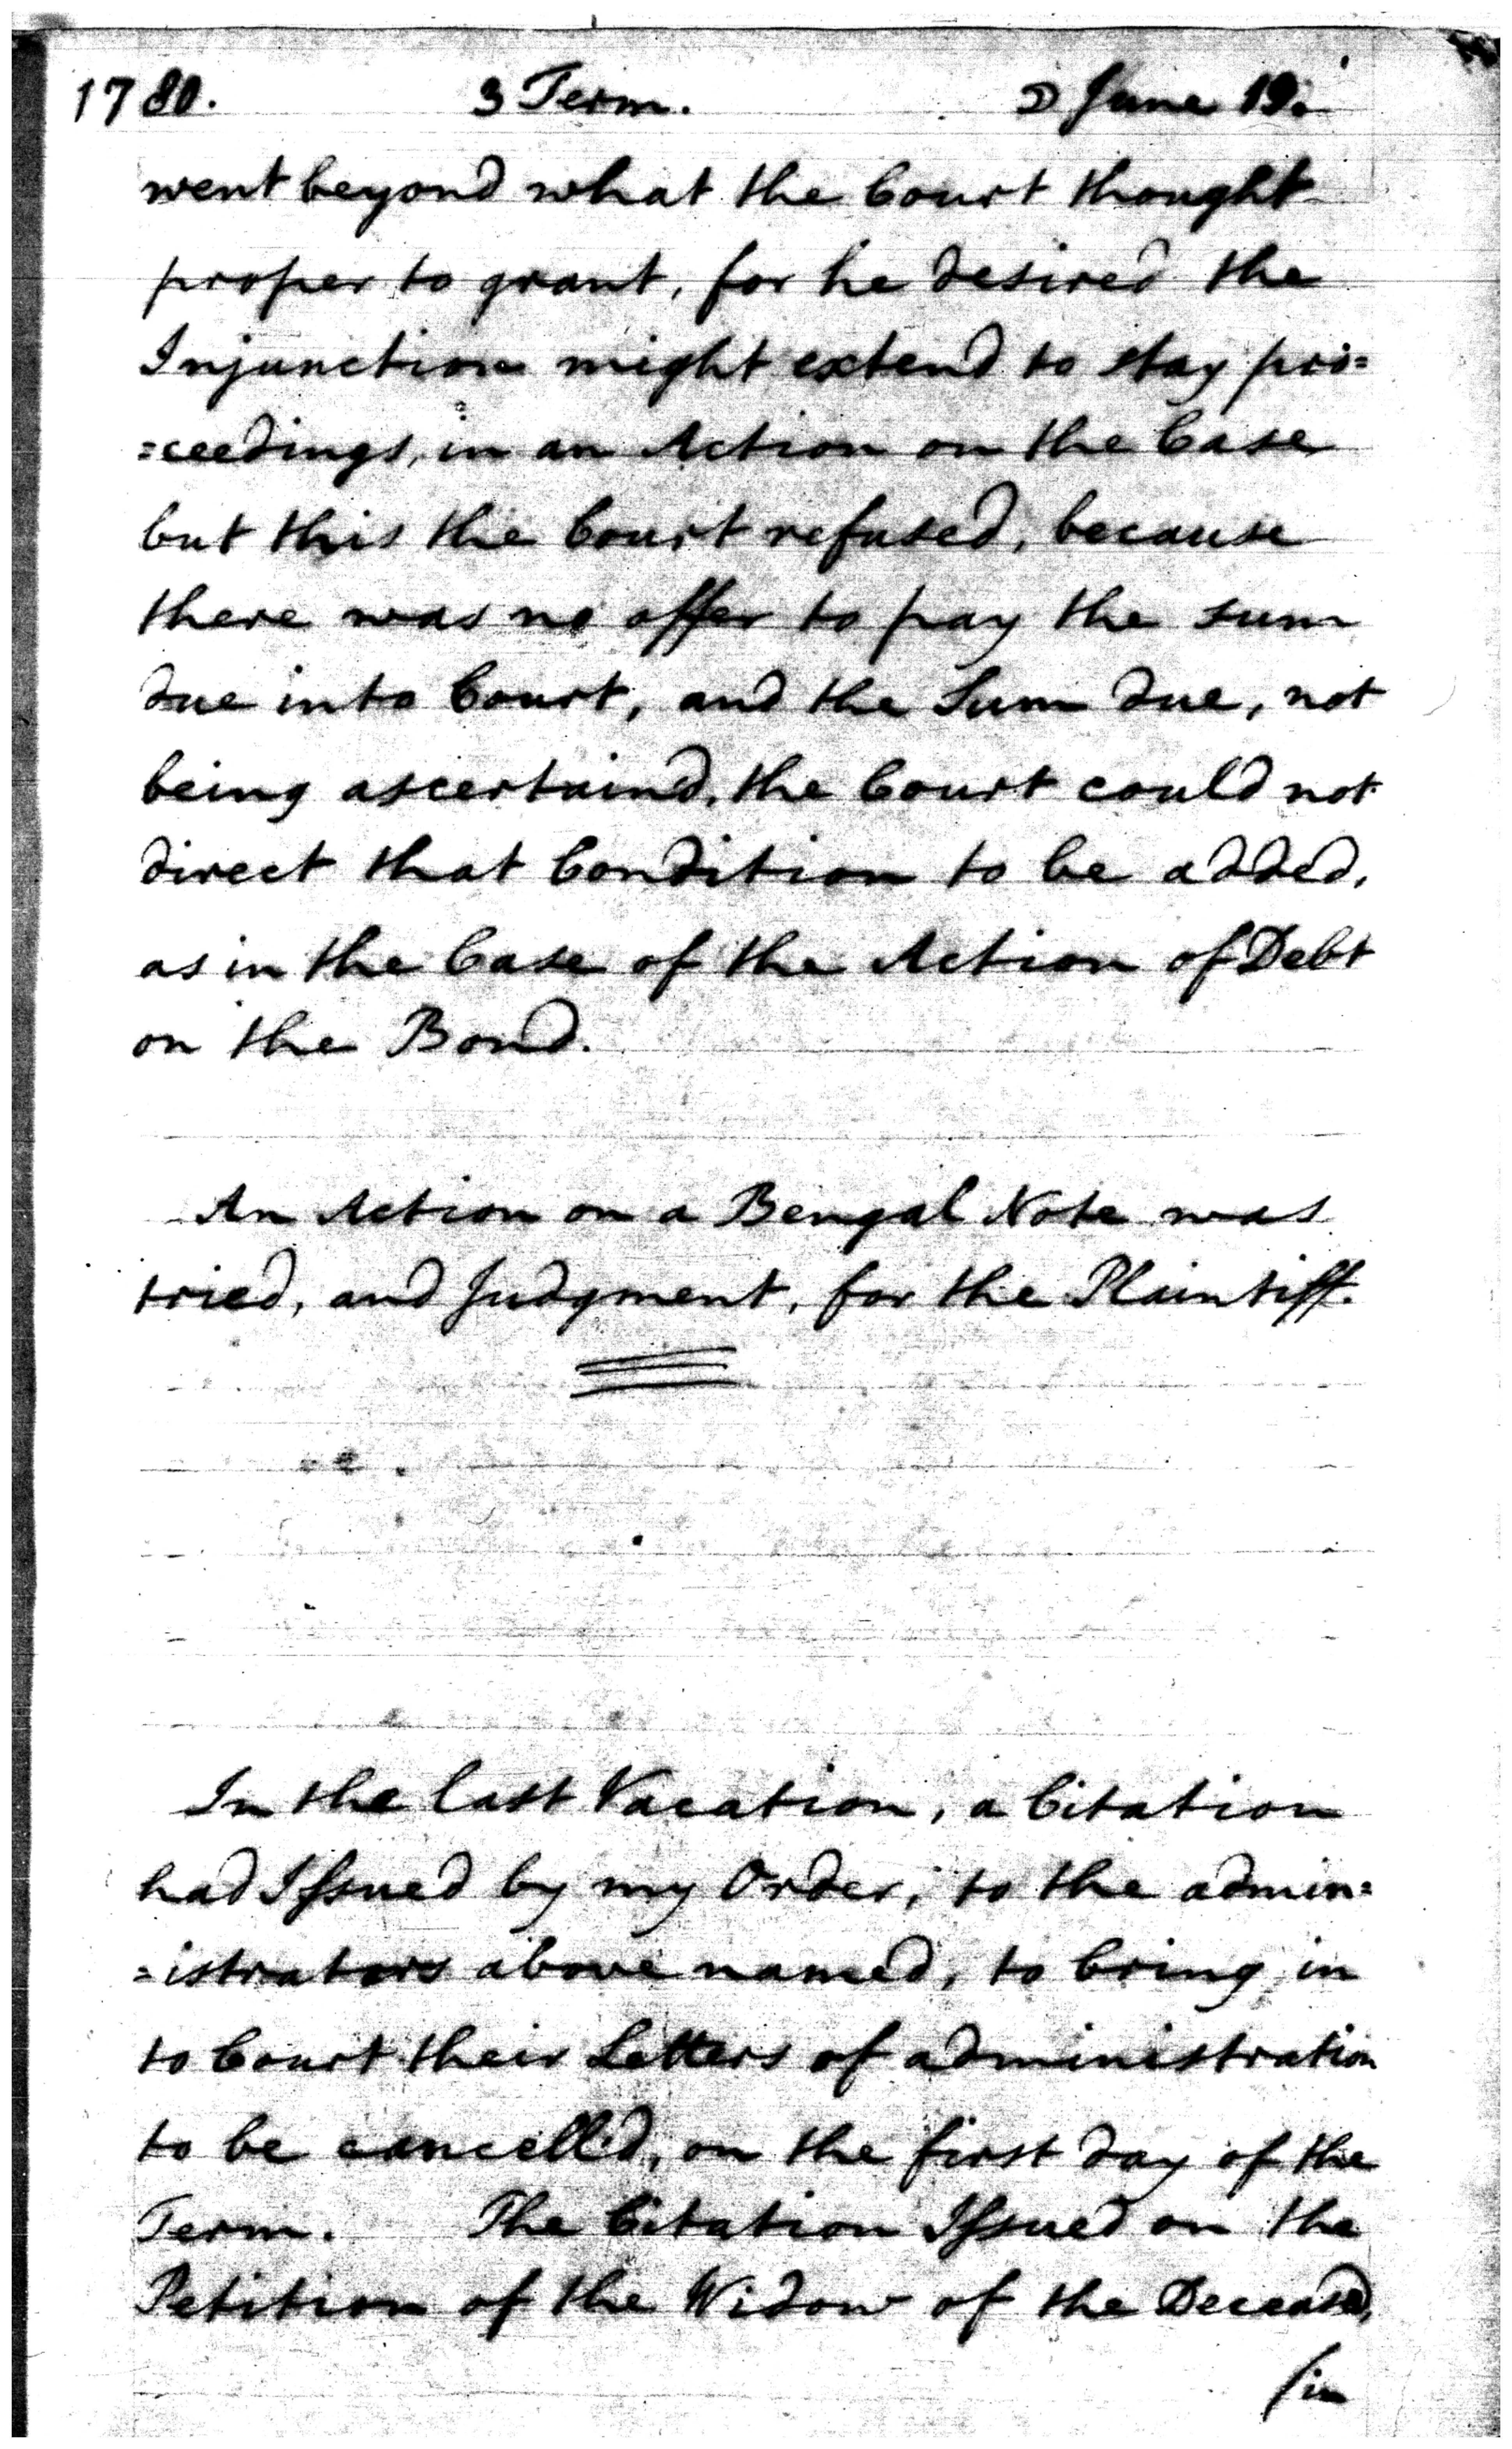 1780. 3 Term. ☽ June 19.
went beyond what the Court thought
proper to grant, for he desired the
Injunction might extend to stay pro=
=ceedings, in an Action on the Case
but this the Court refused, because
there was no offer to pay the sum
due into Court, and the Sum due, not
being ascertaind, the Court could not
direct that Condition to be added,
as in the Case of the Action of Debt
on the Bond.
An Action on a Bengal Note was
tried, and Judgment, for the Plaintiff.
In the last Vacation, a Citation
had Issued by my Order, to the admin=
=istrators above named, to bring in
to Court their Letters of administration
to be cancell'd, on the first day of the
Term. The Citation Issued on the
Petition of the Widow of the Deceased,
(in